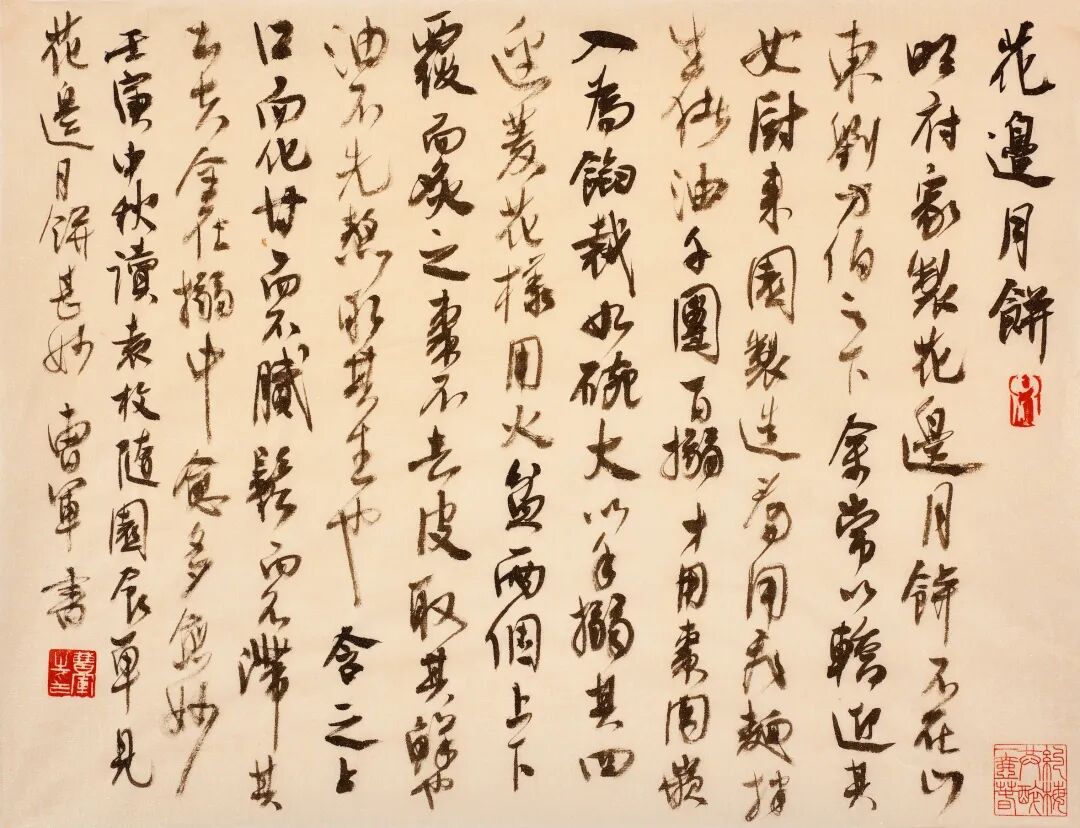 花邊月餅
明府家製花邊月餅不在山
東劉方伯之下余常以轎迎其
女廚來園製造看用飛麵拌
生豬油千團百搦才用棗肉嵌
入為餡裁如碗大以手搦其四
邊菱花樣用火盆兩個上下
覆而炙之棗不去皮取其鮮也
油不先熬取其生也含之上
口而化甘而不膩鬆而不滯其
工夫全在搦中愈多愈妙
壬寅中秋讀袁枚隨園食單見
花邊月餅甚妙 曹軍書